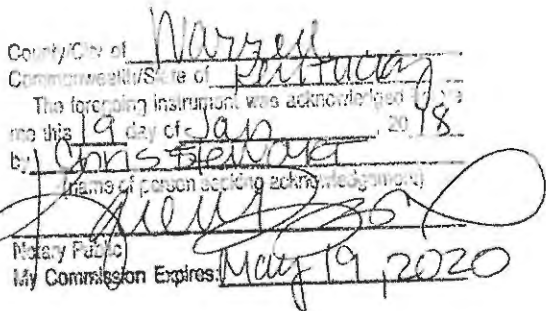 County/City of Warren
Commonwealth/State of Kentucky
The foregoing instrument was acknowledged before
me this 19 day of Jan, 2018
by Chris Stewart
(name of person seeking acknowledgement)
Notary Public
My Commission Expires: May 19, 2020